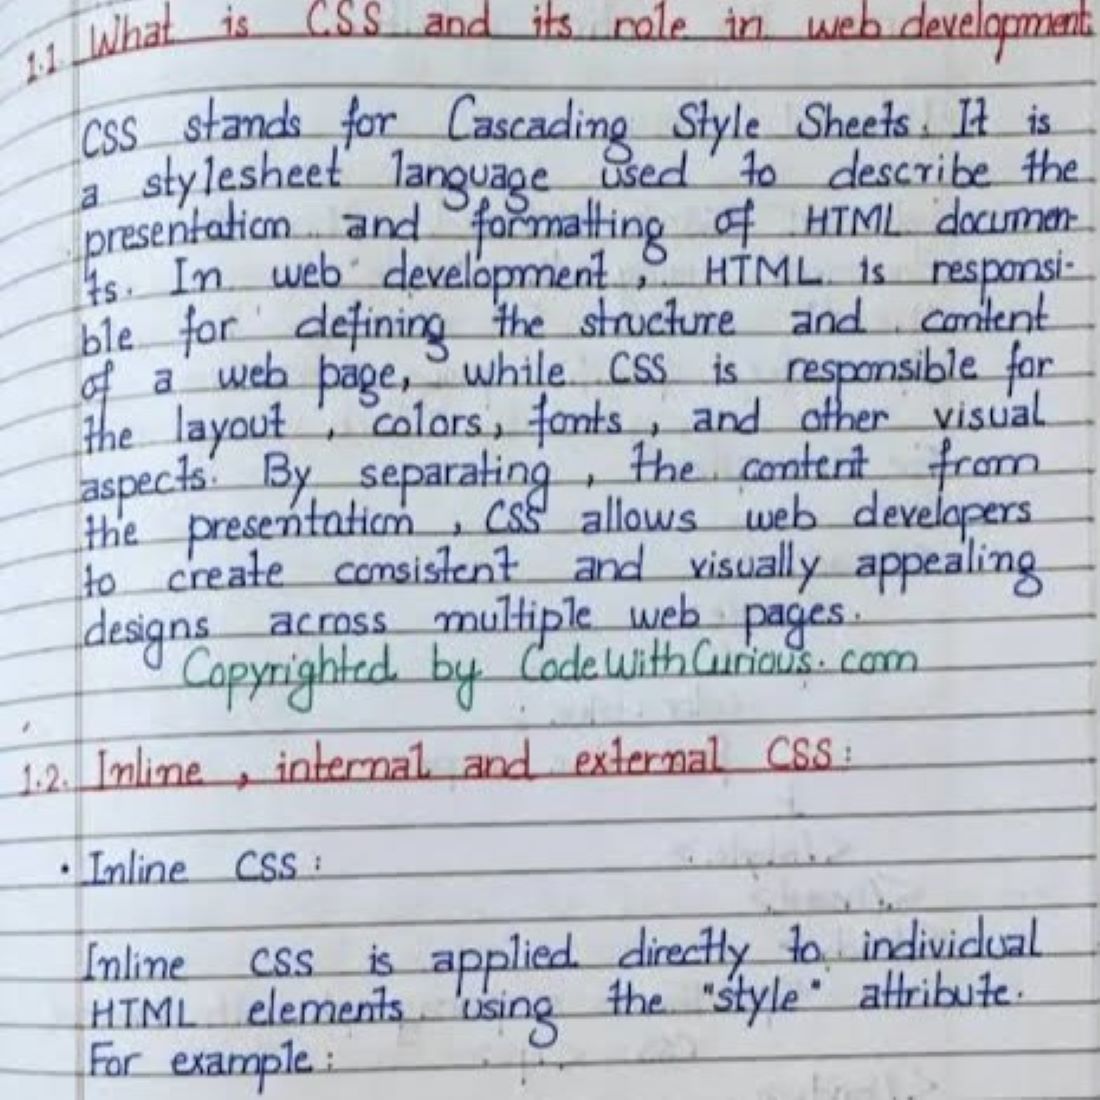 1.1. What is CSS and its role in web development
CSS stands for Cascading Style Sheets. It is
a stylesheet language used to describe the
presentation and formatting of HTML documen-
ts. In web development, HTML is responsi-
ble for defining the structure and content
of a web page, while CSS is responsible for
the layout, colors, fonts, and other visual
aspects. By separating, the content from
the presentation, CSS allows web developers
to create consistent and visually appealing
designs across multiple web pages.
Copyrighted by CodeWithCurious.com
1.2. Inline, internal and external CSS:
• Inline CSS:
Inline CSS is applied directly to individual
HTML elements using the "style" attribute.
For example: